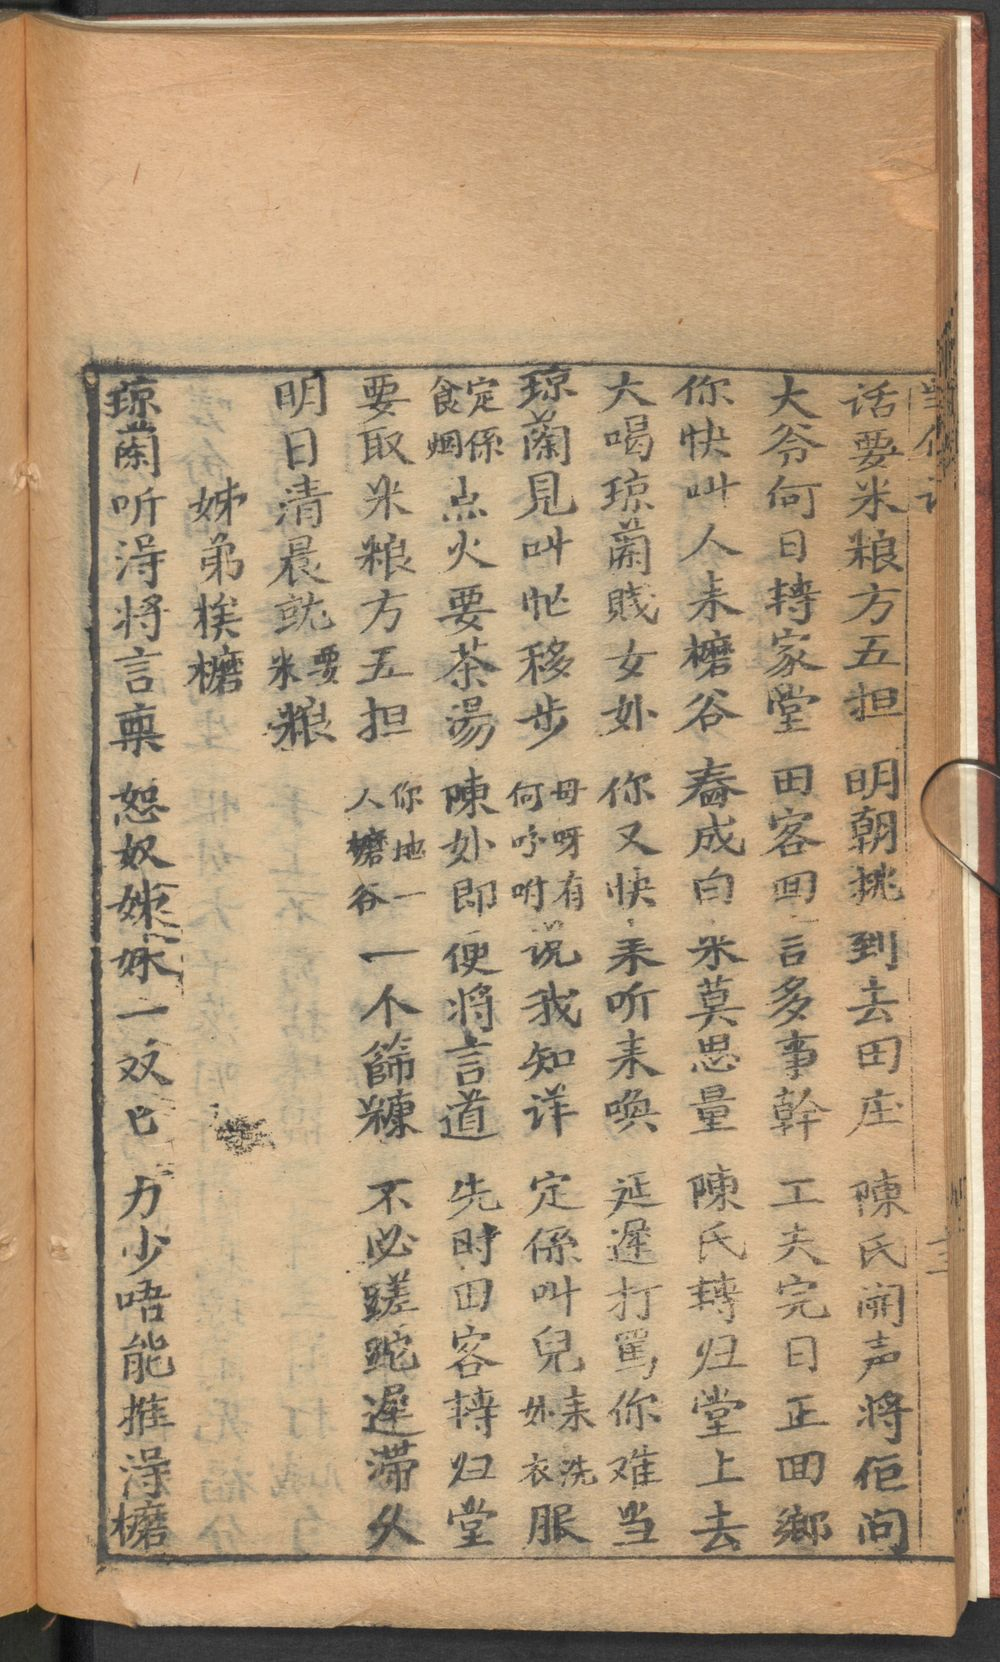 話要米粮方五担　明朝挑到去田庄　陳氏開声將佢问
大爷何日轉家堂　田客回言多事幹　工夫完日正回鄉
你快叫人来櫓谷　舂成白米莫思量　陳氏轉归堂上去
大喝琼蘭賎女处　你又快来听来喚　延遲打骂你难当
琼蘭見叫忙移步　母呀有何吩咐说我知详　定係叫兒来处洗衣服
定係食烟点火要茶湯　陳处即便將言道　先时田客轉归堂
要取米粮方五担　你地一人櫓谷一个篩糠　不必蹉跎遲滞久
明日清晨就要米粮
姊弟挨櫓
琼蘭听淂将言禀　恕奴姊妹一双巳　力少唔能推淂櫓